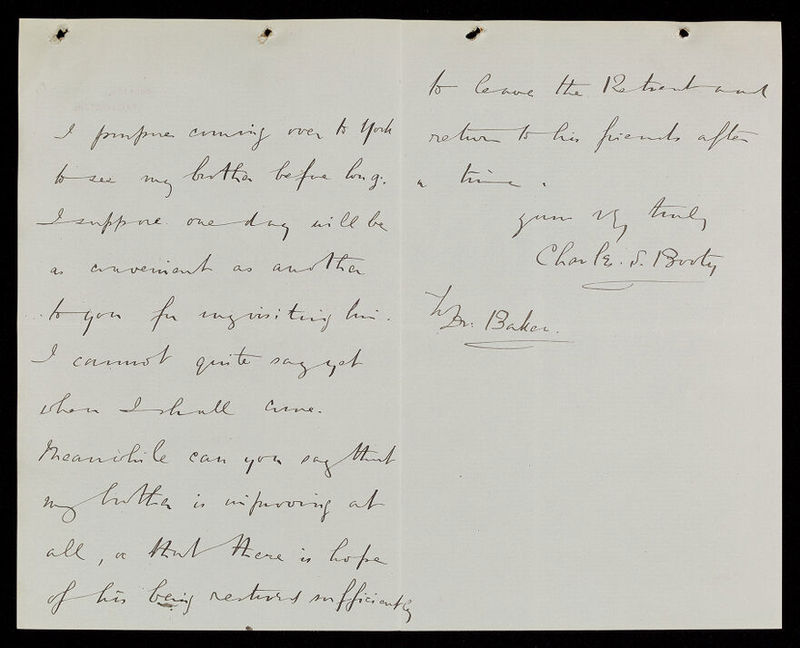 I propose coming over to York
to see my brother before long.
I suppose one day will be
as convenient as another
to you for my visiting him.
I cannot quite say yet
when I shall come.
Meanwhile can you say that
my brother is improving at
all, or that there is hope
of his being restored sufficiently
to leave the Retreat and
return to his friends after
a time.
yours vy truly
Charles. S. Booty
To
Dr. Baker.